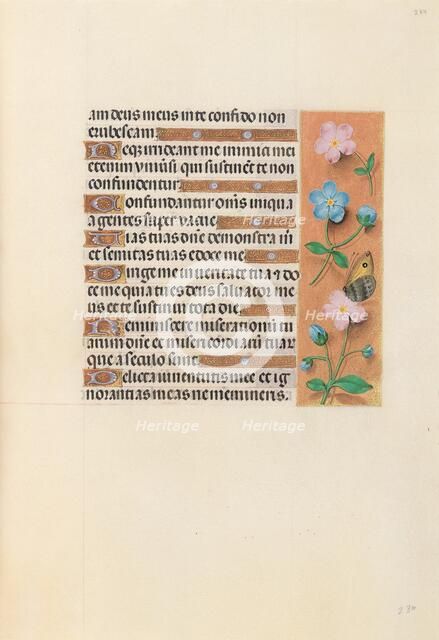 234
am deus meus in te confido non
erubescam
Neq; irrideant me inimici mei
etenim vniuersi qui sustinent te non
confundentur
Confundantur om̄s iniqua
agentes super vacue
Vias tuas dn̄e demonstra m̄
et semitas tuas edoce me
Dirige me in veritate tua et do
ce me quia tu es deus saluator me
us et te sustinui tota die
Reminiscere miseration̄u tu
arum dn̄e et misericordiarum tuar
que a seculo sunt
Delicta iuuentutis mee et ig
norantias meas ne memineris.
Heritage Heritage Heritage
Heritage Heritage Heritage
Heritage Heritage Heritage
234